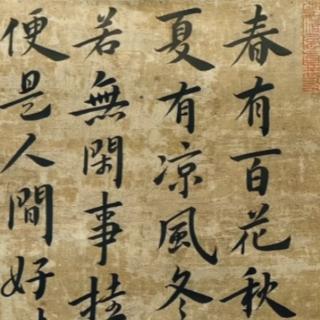 春有百花秋
夏有凉風冬
若無閑事挂
便是人間好